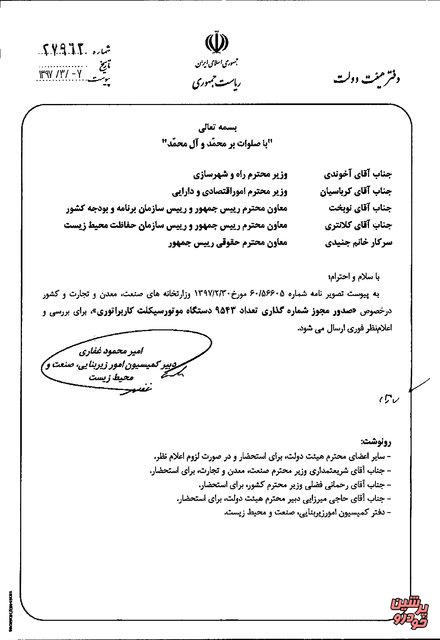 جمهوری اسلامی ایران
ریاست جمهوری
دفتر هیئت دولت
شماره ۲۷۹۶۲
تاریخ ۱۳۹۷/۳/۰۷
پیوست
بسمه تعالی
"با صلوات بر محمّد و آل محمّد"
جناب آقای آخوندی وزیر محترم راه و شهرسازی
جناب آقای کرباسیان وزیر محترم اموراقتصادی و دارایی
جناب آقای نوبخت معاون محترم رییس جمهور و رییس سازمان برنامه و بودجه کشور
جناب آقای کلانتری معاون محترم رییس جمهور و رییس سازمان حفاظت محیط زیست
سرکار خانم جنیدی معاون محترم حقوقی رییس جمهور
با سلام و احترام؛
به پیوست تصویر نامه شماره ۶۰/۵۶۶۰۵ مورخ ۱۳۹۷/۲/۳۰ وزارتخانه های صنعت، معدن و تجارت و کشور
درخصوص «صدور مجوز شماره گذاری تعداد ۹۵۴۳ دستگاه موتورسیکلت کاربراتوری»، برای بررسی و
اعلام‌نظر فوری ارسال می شود.
امیر محمود غفاری
دبیر کمیسیون امور زیربنایی، صنعت و
محیط زیست
رونوشت:
- سایر اعضای محترم هیئت دولت، برای استحضار و در صورت لزوم اعلام نظر.
- جناب آقای شریعتمداری وزیر محترم صنعت، معدن و تجارت، برای استحضار.
- جناب آقای رحمانی فضلی وزیر محترم کشور، برای استحضار.
- جناب آقای حاجی میرزایی دبیر محترم هیئت دولت، برای استحضار.
- دفتر کمیسیون امورزیربنایی، صنعت و محیط زیست.
پرشین
خودرو